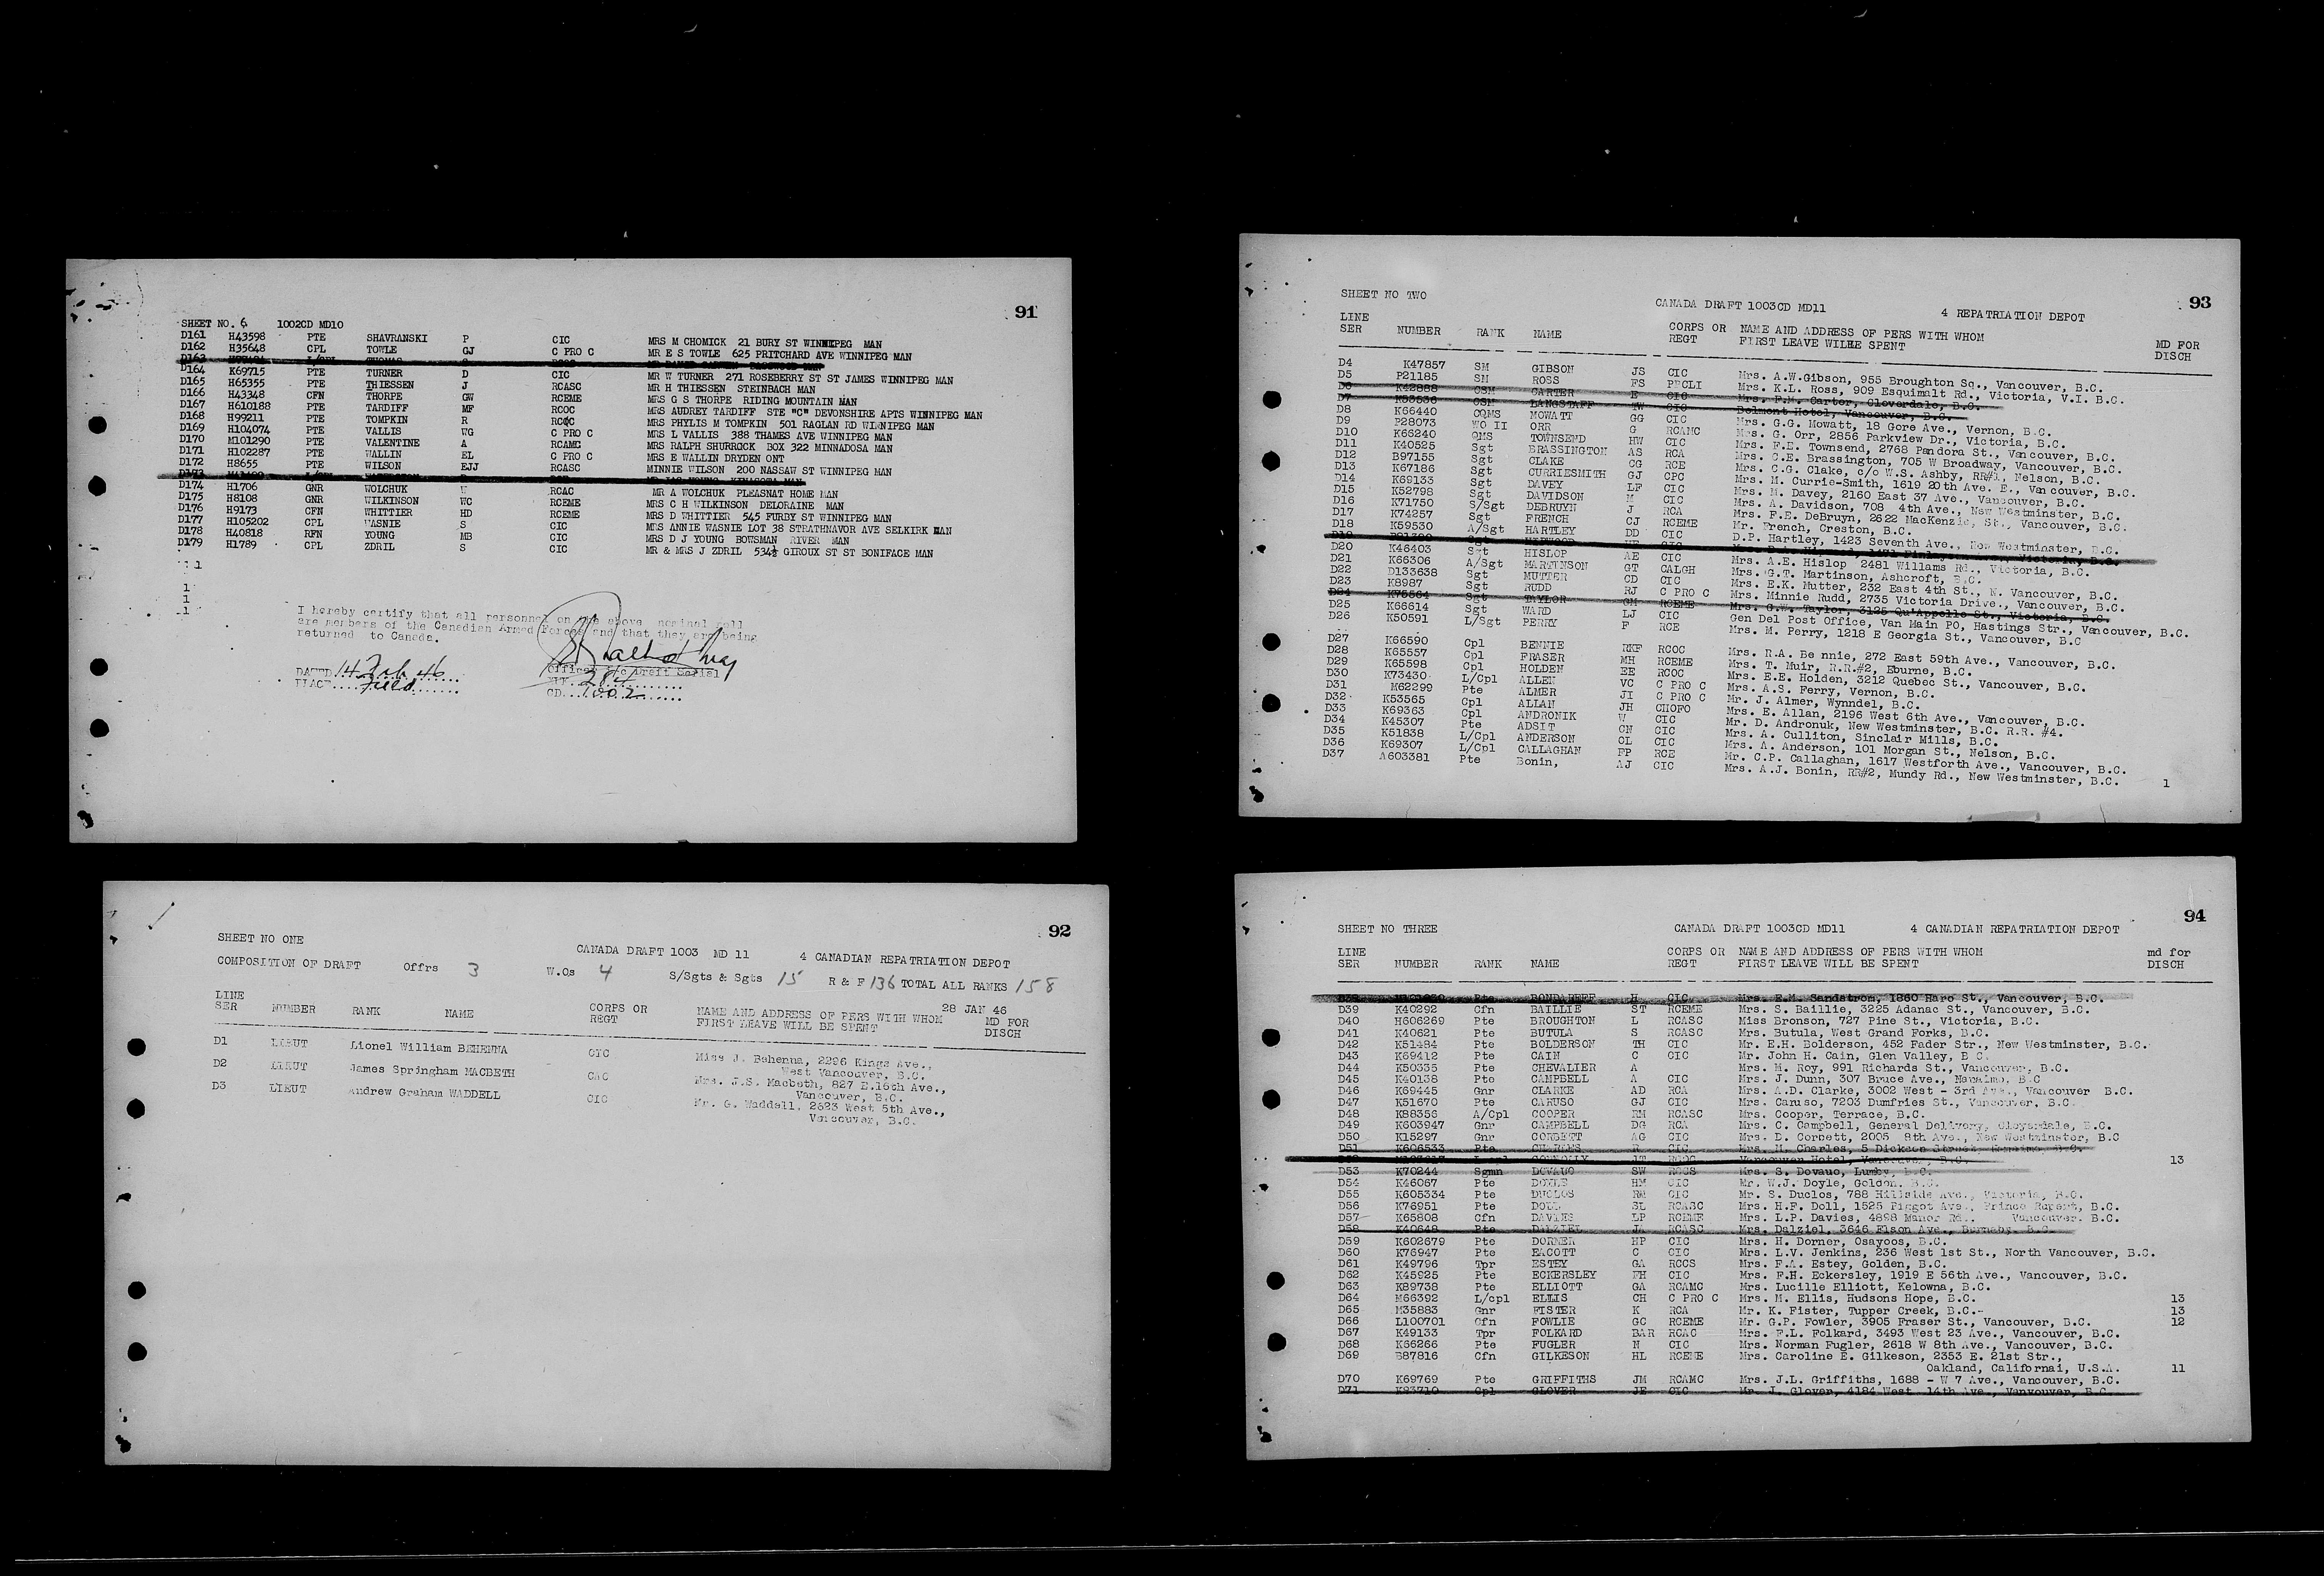 91
SHEET NO. 6 1002CD MD10
D161 H43598 PTE SHAVRANSKI P CIC MRS M CHOMICK 21 BURY ST WINNIPEG MAN
D162 H35648 CPL TOWLE GJ C PRO C MR E S TOWLE 625 PRITCHARD AVE WINNIPEG MAN
D163
D164 K69715 PTE TURNER D CIC MR W TURNER 271 ROSEBERRY ST ST JAMES WINNIPEG MAN
D165 H65355 PTE THIESSEN J RCASC MR H THIESSEN STEINBACH MAN
D166 H43348 CFN THORPE GW RCEME MRS G S THORPE RIDING MOUNTAIN MAN
D167 H610188 PTE TARDIFF MF RCOC MRS AUDREY TARDIFF STE "C" DEVONSHIRE APTS WINNIPEG MAN
D168 H99211 PTE TOMPKIN R RCOC MRS PHYLIS M TOMPKIN 501 RAGLAN RD WINNIPEG MAN
D169 H104074 PTE VALLIS WG C PRO C MRS L VALLIS 388 THAMES AVE WINNIPEG MAN
D170 M101290 PTE VALENTINE A RCAMC MRS RALPH SHURROCK BOX 322 MINNADOSA MAN
D171 H102287 PTE WALLIN EL C PRO C MRS E WALLIN DRYDEN ONT
D172 H8655 PTE WILSON EJJ RCASC MINNIE WILSON 200 NASSAW ST WINNIPEG MAN
D173
D174 H1706 GNR WOLCHUK RCAC MR A WOLCHUK PLEASNAT HOME MAN
D175 H8108 GNR WILKINSON WC RCEME MRS C H WILKINSON DELORAINE MAN
D176 H9173 CFN WHITTIER HD RCEME MRS D WHITTIER 545 FURBY ST WINNIPEG MAN
D177 H105202 CPL WASNIE S CIC MRS ANNIE WASNIE LOT 38 STRATHNAVOR AVE SELKIRK MAN
D178 H40818 RFN YOUNG MB CIC MRS D J YOUNG BOWSMAN RIVER MAN
D179 H1789 CPL ZDRIL S CIC MR & MRS J ZDRIL 534½ GIROUX ST ST BONIFACE MAN
I hereby certify that all personnel on the above nominal roll
are members of the Canadian Armed Forces and that they are being
returned to Canada.
DATED 14 Feb 46
PLACE....Field.......
Officer i/c Draft Serial
284
CD...1002
92
SHEET NO ONE
CANADA DRAFT 1003 MD 11 4 CANADIAN REPATRIATION DEPOT
COMPOSITION OF DRAFT Offrs 3 W.Os 4 S/Sgts & Sgts 15 R & F 136 TOTAL ALL RANKS 158
28 JAN 46
LINE SER NUMBER RANK NAME CORPS OR REGT NAME AND ADDRESS OF PERS WITH WHOM FIRST LEAVE WILL BE SPENT MD FOR DISCH
D1 LIEUT Lionel William BEHENNA CIC Miss J. Behenna, 2296 Kings Ave.,
West Vancouver, B.C.
D2 LIEUT James Springham MACBETH CAC Mrs. J.S. Macbeth, 827 E.16th Ave.,
Vancouver, B.C.
D3 LIEUT Andrew Graham WADDELL CIC Mr. G. Waddell, 2623 West 5th Ave.,
Vancouver, B.C.
93
SHEET NO TWO CANADA DRAFT 1003CD MD11 4 REPATRIATION DEPOT
LINE SER NUMBER RANK NAME CORPS OR REGT NAME AND ADDRESS OF PERS WITH WHOM FIRST LEAVE WILL BE SPENT MD FOR DISCH
D4 K47857 SM GIBSON JS CIC Mrs. A.W.Gibson, 955 Broughton Sq., Vancouver, B.C.
D5 P21185 SM ROSS FS PPCLI Mrs. K.L. Ross, 909 Esquimalt Rd., Victoria, V.I. B.C.
D6 K42888 CSM CARTER E CIC Mrs. F.M. Carter, Cloverdale, B.C.
D7 K53536 CSM LANGSTAFF TW CIC Belmont Hotel, Vancouver, B.C.
D8 K66440 CQMS MOWATT GG CIC Mrs. G.G. Mowatt, 18 Gore Ave., Vernon, B.C.
D9 P28073 WO II ORR G RCAMC Mrs. G. Orr, 2856 Parkview Dr., Victoria, B.C.
D10 K66240 QMS TOWNSEND HW CIC Mrs. F.E. Townsend, 2768 Pandora St., Vancouver, B.C.
D11 K40525 Sgt BRASSINGTON AS RCA Mrs. C.E. Brassington, 705 W Broadway, Vancouver, B.C.
D12 B97155 Sgt CLAKE CG RCE Mrs. C.G. Clake, c/o W.S. Ashby, RR#1, Nelson, B.C.
D13 K67186 Sgt CURRIESMITH GJ CPC Mrs. M. Currie-Smith, 1619 20th Ave. E., Vancouver, B.C.
D14 K69133 Sgt DAVEY LF CIC Mrs. M. Davey, 2160 East 37 Ave., Vancouver, B.C.
D15 K52798 Sgt DAVIDSON M CIC Mrs. A. Davidson, 708 4th Ave., New Westminster, B.C.
D16 K71750 S/Sgt DEBRUYN J RCA Mrs. F.E. DeBruyn, 2622 MacKenzie St., Vancouver, B.C.
D17 K74257 Sgt FRENCH CJ RCEME Mr. French, Creston, B.C.
D18 K59530 A/Sgt HARTLEY DD CIC D.P. Hartley, 1423 Seventh Ave., New Westminster, B.C.
D19
D20 K46403 Sgt HISLOP AE CIC Mrs. A.E. Hislop 2481 Willams Rd., Victoria, B.C.
D21 K66306 A/Sgt MARTINSON GT CALGH Mrs. G.T. Martinson, Ashcroft, B.C.
D22 D133638 Sgt MUTTER CD CIC Mrs. E.K. Mutter, 232 East 4th St., N. Vancouver, B.C.
D23 K8987 Sgt RUDD RJ C PRO C Mrs. Minnie Rudd, 2735 Victoria Drive., Vancouver, B.C.
D24 K75564 Sgt TAYLOR GM RCEME Mrs. G.W. Taylor, 3125 Qu'Appelle St., Victoria, B.C.
D25 K66614 Sgt WARD LJ CIC Gen Del Post Office, Van Main PO, Hastings Str., Vancouver, B.C.
D26 K50591 L/Sgt PERRY F RCE Mrs. M. Perry, 1218 E Georgia St., Vancouver, B.C
D27 K66590 Cpl BENNIE RKF RCOC Mrs. R.A. Be nnie, 272 East 59th Ave., Vancouver, B.C.
D28 K65557 Cpl FRASER MH RCEME Mrs. T. Muir, R.R.#2, Eburne, B.C.
D29 K65598 Cpl HOLDEN EE RCOC Mrs. E.E. Holden, 3212 Quebec St., Vancouver, B.C.
D30 K73430 L/Cpl ALLEN VC C PRO C Mrs. A.S. Ferry, Vernon, B.C.
D31 M62299 Pte ALMER JI C PRO C Mr. J. Almer, Wynndel, B.C.
D32 K53565 Cpl ALLAN JH CHOFO Mrs. E. Allan, 2196 West 6th Ave., Vancouver, B.C.
D33 K69363 Cpl ANDRONIK W CIC Mr. D. Andronuk, New Westminster, B.C. R.R. #4.
D34 K45307 Pte ADSIT CN CIC Mrs. A. Culliton, Sinclair Mills, B.C.
D35 K51838 L/Cpl ANDERSON OL CIC Mrs. A. Anderson, 101 Morgan St., Nelson, B.C.
D36 K69307 L/Cpl CALLAGHAN FP RCE Mr. C.P. Callaghan, 1617 Westforth Ave., Vancouver, B.C.
D37 A603381 Pte Bonin, AJ CIC Mrs. A.J. Bonin, RR#2, Mundy Rd., New Westminster, B.C. 1
94
SHEET NO THREE CANADA DRAFT 1003CD MD11 4 CANADIAN REPATRIATION DEPOT
LINE SER NUMBER RANK NAME CORPS OR REGT NAME AND ADDRESS OF PERS WITH WHOM FIRST LEAVE WILL BE SPENT md for DISCH
Pte BONDAREFF H CIC Mrs. E.M. Sandstrom, 1860 Haro St., Vancouver, B.C.
D39 K40292 Cfn BAILLIE ST RCEME Mrs. S. Baillie, 3225 Adanac St., Vancouver, B.C.
D40 H606269 Pte BROUGHTON L RCASC Miss Bronson, 727 Pine St., Victoria, B.C.
D41 K40621 Pte BUTULA S RCASC Mrs. Butula, West Grand Forks, B.C.
D42 K51484 Pte BOLDERSON TH CIC Mr. E.H. Bolderson, 452 Fader Str., New Westminster, B.C.
D43 K69412 Pte CAIN C CIC Mr. John H. Cain, Glen Valley, B C.
D44 K50335 Pte CHEVALIER A Mrs. M. Roy, 991 Richards St., Vancouver, B.C.
D45 K40138 Pte CAMPBELL A CIC Mrs. J. Dunn, 307 Bruce Ave., Nanaimo, B.C
D46 K69448 Gnr CLARKE AD RCA Mrs. A.D. Clarke, 3002 West - 3rd Ave., Vancouver B.C.
D47 K51670 Pte CARUSO GJ CIC Mrs. Caruso, 7203 Dumfries St., Vancouver, B.C.
D48 K88356 A/Cpl COOPER RM RCASC Mrs. Cooper, Terrace, B.C.
D49 K603947 Gnr CAMPBELL DG RCA Mrs. C. Campbell, General Delivery, Cloverdale, B.C.
D50 K15297 Gnr CORBETT AG CIC Mrs. D. Corbett, 2005 8th Ave., New Westminster, B.C
D51 K606533 Pte CHARLES R CIC Mrs. M. Charles, 5 Dickson Street, Nanaimo, B.C.
Vancouver Hotel, Vancouver, B.C. 13
D53 K70244 Sgmn DOVAUO SW RCCS Mrs. S. Dovauo, Lumby, B.C.
D54 K46067 Pte DOYLE HM CIC Mr. W.J. Doyle, Golden. B.C.
D55 K605334 Pte DUCLOS RM CIC Mr. S. Duclos, 788 Hillside Ave., Victoria, B.C.
D56 K76951 Pte DOLL SL RCASC Mrs. H.F. Doll, 1525 Piggot Ave., Prince Rupert, B.C.
D57 K65808 Cfn DAVIES LP RCEME Mrs. L.P. Davies, 4898 Manor Rd., Vancouver. B.C.
D58 K40648 Pte DALZIEL JA RCASC Mrs. Dalziel, 3646 Elson Ave., Burnaby, B.C.
D59 K602679 Pte DORNER HP CIC Mrs. H. Dorner, Osayoos, B.C.
D60 K76947 Pte EACOTT C CIC Mrs. L.V. Jenkins, 236 West 1st St., North Vancouver, B.C.
D61 K49796 Tpr ESTEY GA RCCS Mrs. F.A. Estey, Golden, B.C.
D62 K45925 Pte ECKERSLEY FH CIC Mrs. F.H. Eckersley, 1919 E 56th Ave., Vancouver, B.C.
D63 K89738 Pte ELLIOTT GA RCAMC Mrs. Lucille Elliott, Kelowna, B.C.
D64 M66392 L/cpl ELLIS CH C PRO C Mrs. M. Ellis, Hudsons Hope, B.C. 13
D65 M35883 Gnr FISTER K RCA Mr. K. Fister, Tupper Creek, B.C.- 13
D66 L100701 Cfn FOWLIE GC RCEME Mr. G.P. Fowler, 3905 Fraser St., Vancouver, B.C. 12
D67 K49133 Tpr FOLKARD BAR RCAC Mrs. F.L. Folkard, 3493 West 23 Ave., Vancouver, B.C.
D68 K66266 Pte FUGLER N CIC Mrs. Norman Fugler, 2618 W 8th Ave., Vancouver, B.C.
D69 B87816 Cfn GILKESON HL RCEME Mrs. Caroline E. Gilkeson, 2353 E. 21st Str.,
Oakland, Califörnai, U.S.A. 11
D70 K69769 Pte GRIFFITHS JM RCAMC Mrs. J.L. Griffiths, 1688 - W 7 Ave., Vancouver, B.C.
D71 K93710 Cpl GLOVER JE CIC Mr. J. Glover, 4184 West 14th Ave., Vanvouver, B.C.